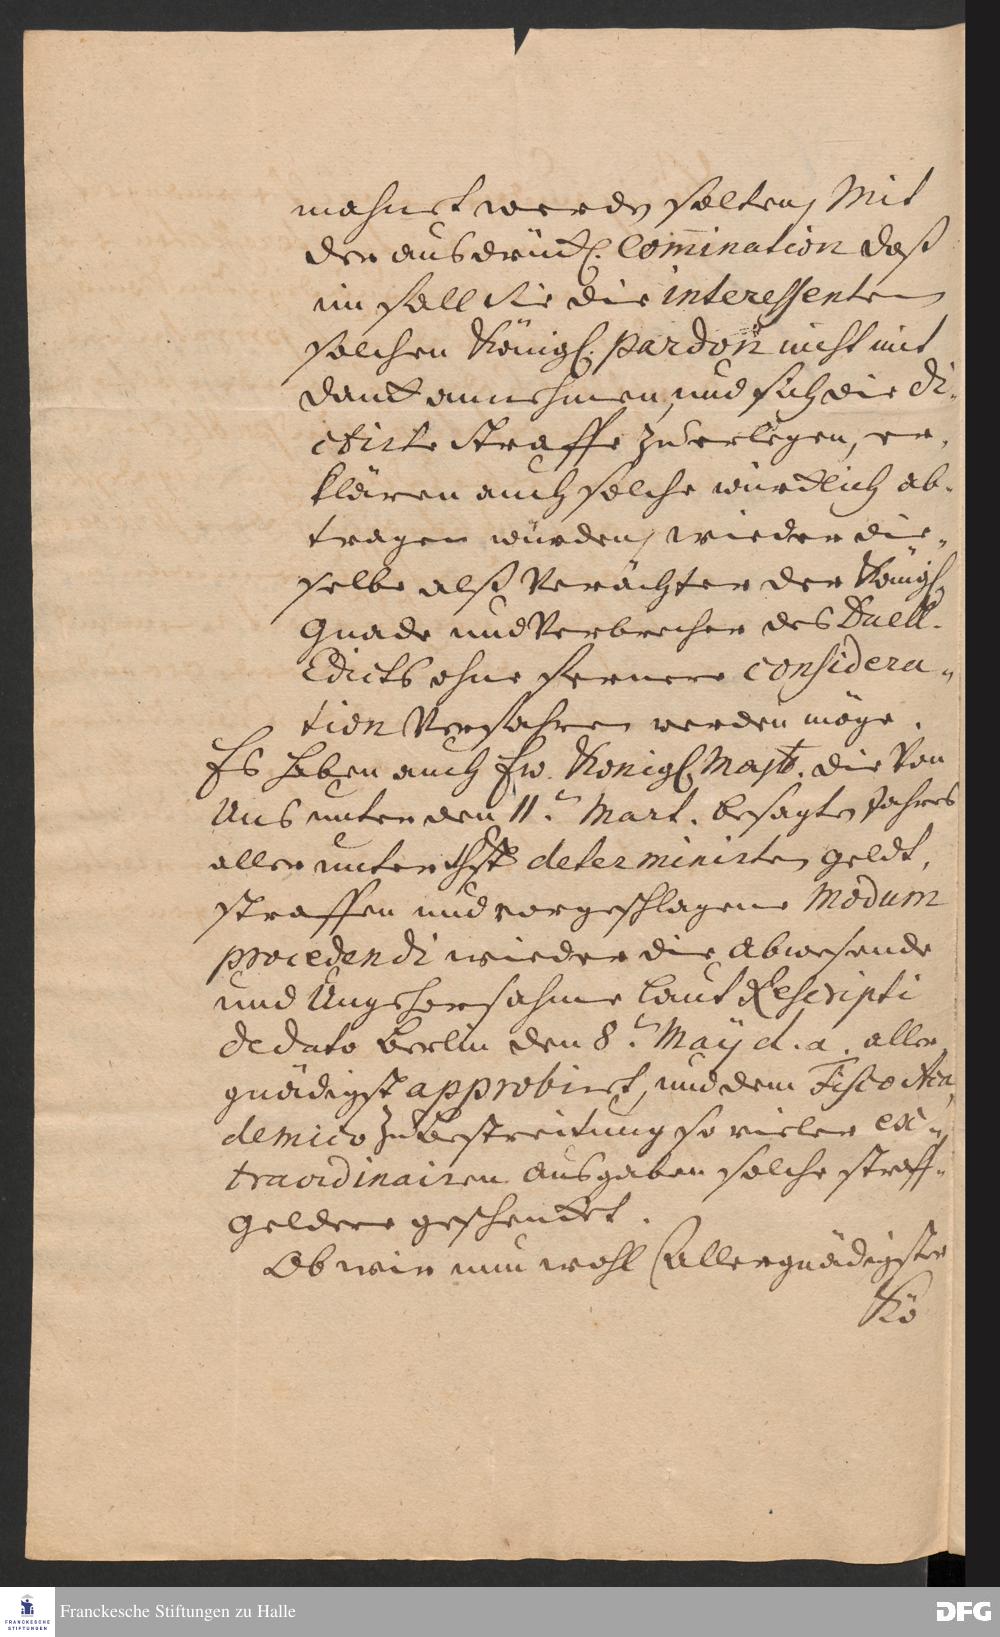 mahnet werden solten, Mit
der ausdrückl. Com̄ination daß
im fall Sie die interessenten
solchen Königl. pardon nicht mit
danck annehmen, und sich die di-
ctirte Straffe zu erlegen, er-
klären auch solche würcklich ab-
tragen würden, wieder die-
selbe alß Verächter der Königl.
Gnade und Verbrecher des Duell-
Edicts ohne fernere considera-
tion Verfahren werden möge.
Es haben auch Ew. Königl. Mayt. die Von
Uns unter den 11.ten Mart. besagten Jahres
aller unterthst determinirten geldt,
straffen und vorgeschlagene Modum
procedendi wieder die Abwesende
und Ungehorsahme laut Rescripti
de dato Berlin den 8.ten Maÿ d. a. aller-
gnädigst approbiret, und dem Fisco Aca-
demico zu bestreitung so vieler ex-
traordinairen ausgaben solche straff-
geldere geschencket.
Ob wir nun wohl (Allergnädigster
Kö
Franckesche Stiftungen zu Halle
FRANCKESCHE
STIFTUNGEN
DFG